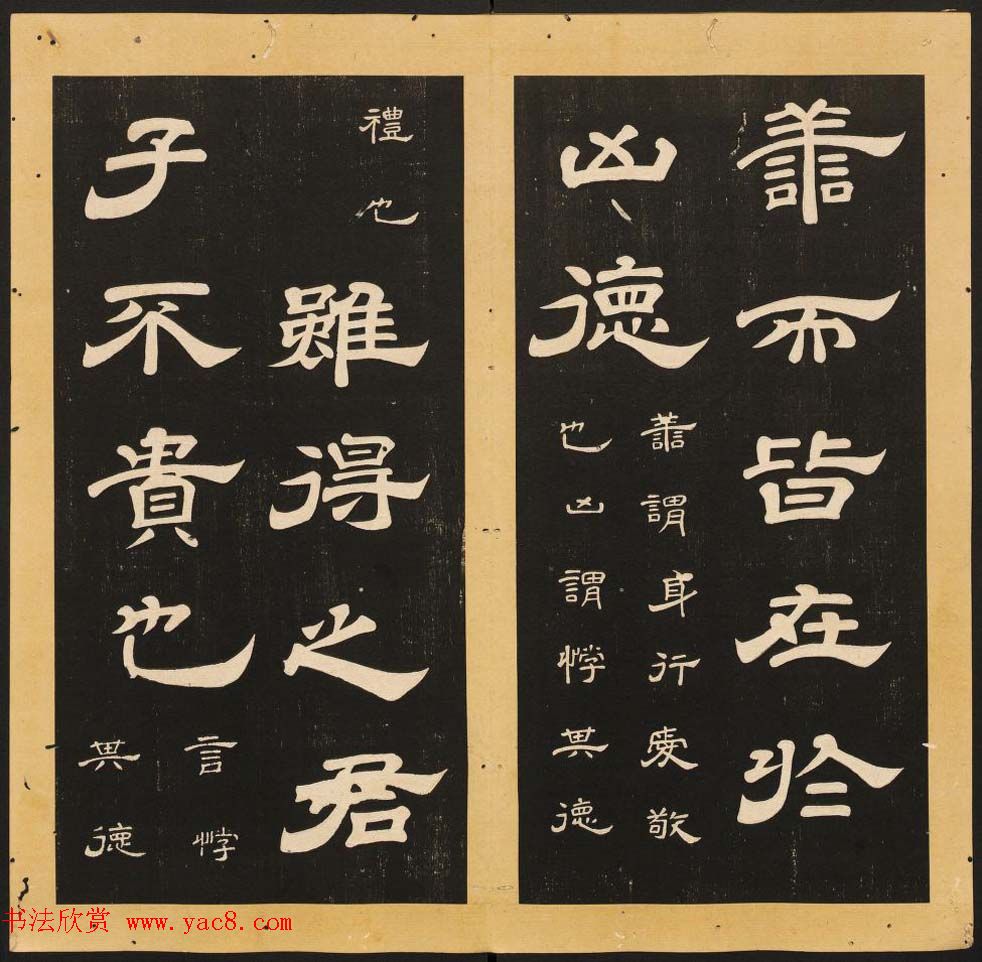 譱而皆在於
凶德
譱謂身行愛敬
也凶謂悖其德
禮也
雖得之君
子不貴也
言悖
其德
书法欣赏 www.yac8.com